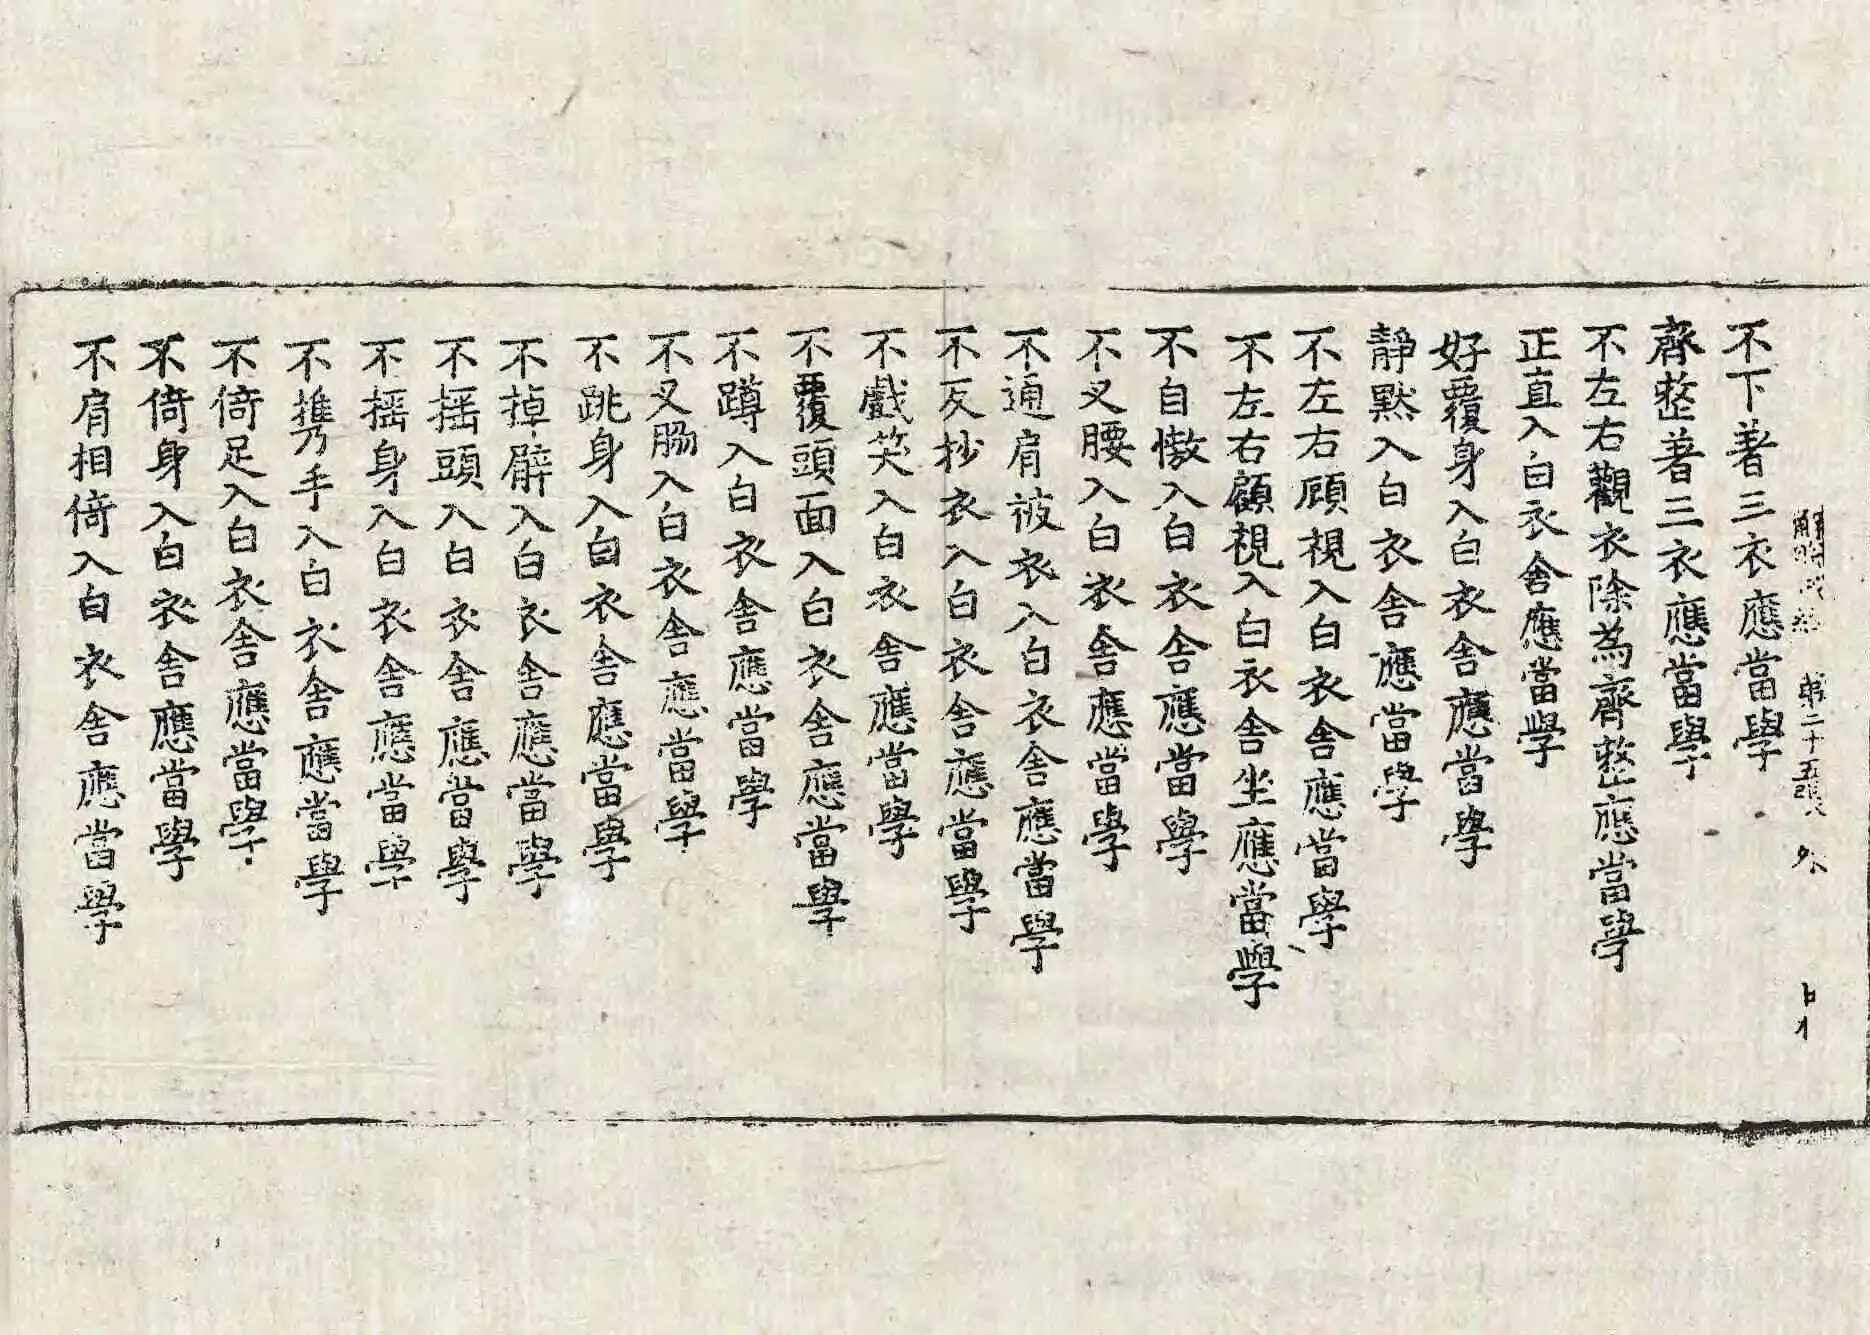 解脫戒經 第二十五張 外
不下著三衣應當學
齊整著三衣應當學
不左右觀衣除為齊整應當學
正直入白衣舍應當學
好覆身入白衣舍應當學
靜默入白衣舍應當學
不左右顧視入白衣舍應當學
不左右顧視入白衣舍坐應當學
不自慠入白衣舍應當學
不叉腰入白衣舍應當學
不通肩被衣入白衣舍應當學
不反抄衣入白衣舍應當學
不戲笑入白衣舍應當學
不覆頭面入白衣舍應當學
不蹲入白衣舍應當學
不叉脇入白衣舍應當學
不跳身入白衣舍應當學
不掉臂入白衣舍應當學
不搖頭入白衣舍應當學
不搖身入白衣舍應當學
不攜手入白衣舍應當學
不倚足入白衣舍應當學
不倚身入白衣舍應當學
不肩相倚入白衣舍應當學